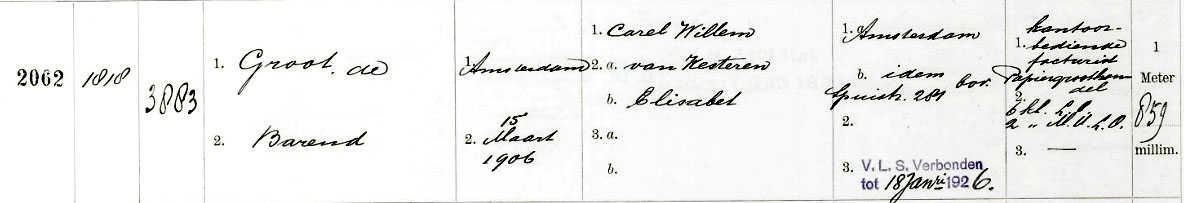 2062
1818
3883
1. Groot, de
2. Barend
1. Amsterdam
2. 15 Maart 1906
1. Carel Willem
2. a. van Kesteren
b. Elisabet
3. a.
b.
1. a. Amsterdam
b. idem
Spuistr. 281 bov.
2.
3. V. L. S. Verbonden
tot 18 Janri 1926.
kantoor-
1. bediende
facturist
Papiergroothan
del
2.
6 kl. L.O.
2 " M.U.L.O.
3. —
1
Meter
859
millim.